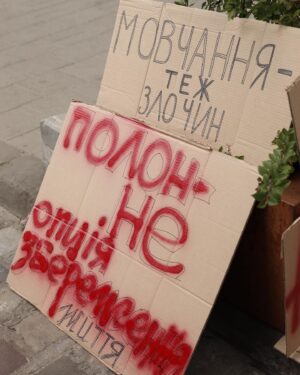 МОВЧАННЯ-
ТЕЖ
ЗЛОЧИН
ПОЛОН-
НЕ
опція
збереження
ЖИТТЯ